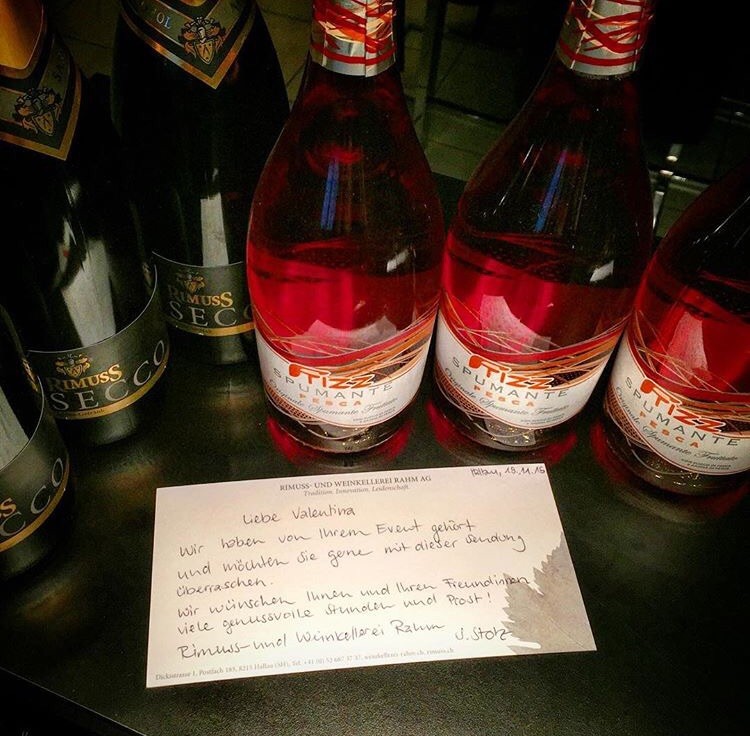 RIMUSS
SECCO
RIMUSS
SECCO
STIZZ
SPUMANTE
PESCA
Originale Spumante Fruttato
STIZZ
SPUMANTE
PESCA
Originale Spumante Fruttato
STIZZ
SPUMANTE
PESCA
Originale Spumante Fruttato
RIMUSS- UND WEINKELLEREI RAHM AG
Tradition. Innovation. Leidenschaft.
Hallau, 19.11.15
Liebe Valentina
Wir haben von Ihrem Event gehört
und möchten Sie gerne mit dieser Sendung
überraschen.
Wir wünschen Ihnen und Ihren Freundinnen
viele genussvolle Stunden und Prost!
Rimuss- und Weinkellerei Rahm J. Stolz
Dickistrasse 1, Postfach 183, 8215 Hallau (SH), Tel. +41 (0) 52 687 37 37, rimuss.ch